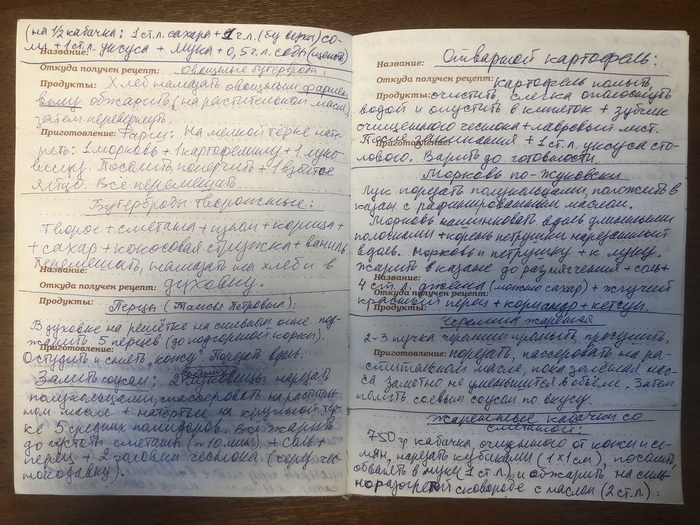 (на 1/2 кабачка: 1 ст.л. сахара + 1 ч.л. (без верха) со-
ли + 1 ст.л. уксуса + мука + 0,5 г.л. соды
Название:
Откуда получен рецепт: Овощные бутерброды.
Продукты: Хлеб намазать овощным фаршем,
снизу обжарить (на растительном масле),
затем перевернуть.
Приготовление: Фарш: На мелкой тёрке нате-
реть: 1 морковь + 1 картофелину + 1 луко-
вицу. Посолить, поперчить + 1 взбитое
яйцо. Всё перемешать.
Бутерброды творожные:
Творог + сметана + изюм + корица +
+ сахар + кокосовая стружка + ваниль
Перемешать, намазать на хлеб и в
Название:
Откуда получен рецепт: духовку.
Продукты: Перцы (Таисья Петровна):
В духовке на решётке на сильном огне под-
жарить 5 перцев (до подгоревшей корки).
Приготовление:
Остудить и снять "кожу". Порезать вдоль.
Залить соусом: 2 большие луковицы нарезать
полукольцами, спассеровать на раститель-
ном масле + натёртые на крупной тёр-
ке 5 средних помидоров. Всё жарить
до густоты сметаны (≈10 мин.) + соль +
перец + 2 головки чеснока (через чес-
нокодавку).
Название: Отварной картофель:
Откуда получен рецепт: Картофель помыть,
Продукты: очистить, слегка ополоснуть
водой и опустить в кипяток + зубчик
очищенного чеснока + лавровый лист.
После закипания + 1 ст.л. уксуса сто-
Приготовление:
лового. Варить до готовности.
Морковь по-жуковски
Лук порезать полукольцами, положить в
казан с рафинированным маслом.
Морковь нашинковать вдоль длинными
полосками + корень петрушки нарезанный
вдоль. Морковь и петрушку + к луку.
Название:
Жарить в казане до размягчения + соль +
4 ст.л. джема (можно сахар) + жгучий
Откуда получен рецепт:
красный перец + кориандр + кетчуп.
Продукты:
Черемша жареная
2-3 пучка черемши промыть, просушить,
Приготовление: порезать, пассеровать на ра-
стительном масле, пока зелёная мас-
са заметно не уменьшится в объёме. Затем
полить соевым соусом по вкусу.
Жаренные кабачки со
сметаной:
750 гр кабачка, очищенного от кожи и се-
мян, нарезать кубиками (1х1 см), посолить,
обвалять в муке (1 ст.л.) и обжарить на силь-
но разогретой сковороде с маслом (2 ст.л.).